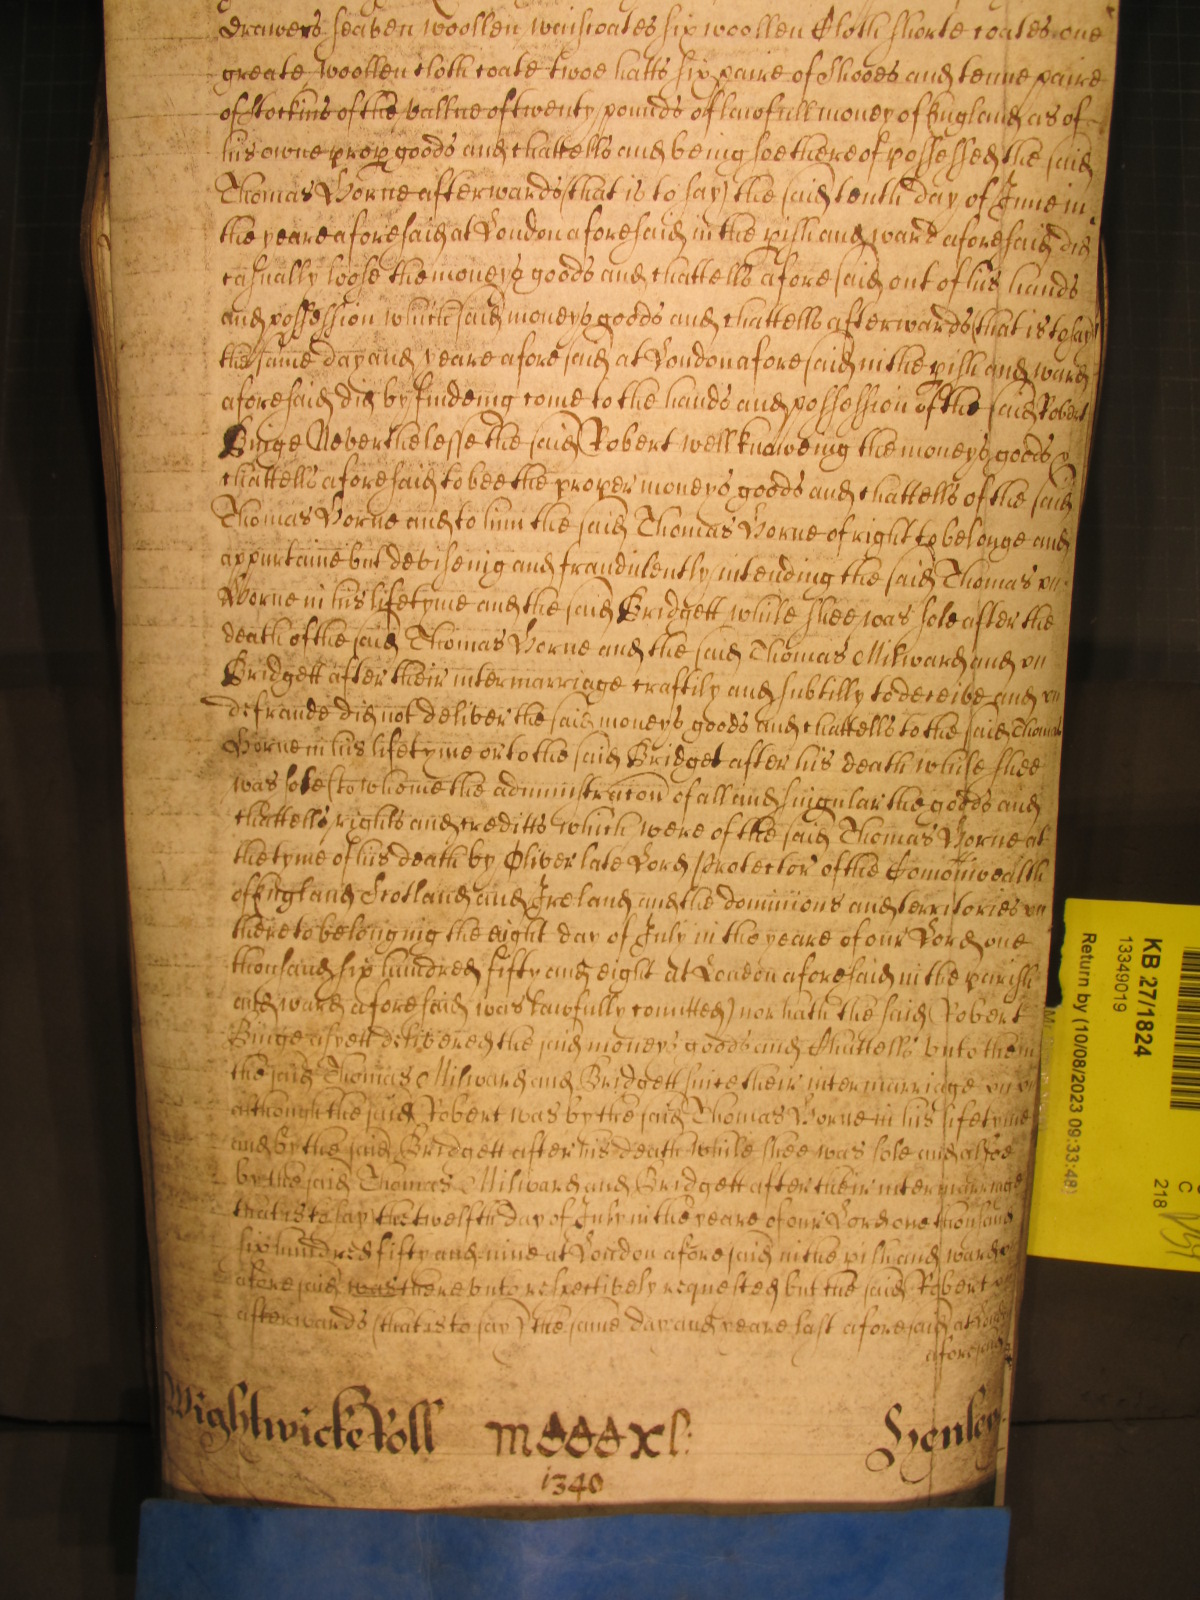 drawers seaven woollen waistcoates six woollen Cloth shorte coates one
greate woollen cloth coate twoe hatts six paire of Shooes and tenne paire
of Stockins of the vallue of twenty pounds of lawfull money of England as of
his owne prop goods and chattells and being soe thereof possessed the said
Thomas Horne afterwards (that is to say) the said tenth day of June in
the yeare aforesaid at London aforesaid in the pish and ward aforesaid did
casually loose the moneys goods and chattells aforesaid out of his hands
and possession which said moneys goods and chattells afterwards (that is to say)
the same day and yeare aforesaid at London aforesaid in the pish and ward
aforesaid did by findeing come to the hands and possession of the said Robert
Binge Neverthelesse the said Robert well knoweing the moneys goods &
chattells aforesaid to bee the proper moneys goods and chattells of the said
Thomas Horne and to him the said Thomas Horne of right to belonge and
appertaine but deviseing and fraudulently intending the said Thomas
Horne in his lifetyme and the said Bridgett while shee was sole after the
death of the said Thomas Horne and the said Thomas Milward and
Bridgett after their intermarriage craftily and subtilly to deceive and
defraude did not deliver the said moneys goods and chattells to the said Thomas
Horne in his lifetyme or to the said Bridget after his death while shee
was sole (to whome the administracon of all and singular the goods and
chattells rights and creditts which were of the said Thomas Horne at
the tyme of his death by Oliver late Lord Protector of the Comonwealth
of England Scotland and Ireland and the dominions and territories
thereto belonging the eight day of July in the yeare of our Lord one
thousand six hundred fifty and eight at London aforesaid in the parish
and ward aforesaid was lawfully comitted) nor hath the said Robert
Binge as yett delivered the said moneys goods and Chattells unto them
the said Thomas Milward and Bridgett since their intermarriage
although the said Robert was by the said Thomas Horne in his lifetyme
and by the said Bridgett after his death while shee was sole and alsoe
by the said Thomas Milward and Bridgett after their intermarriage
that is to say the twelfth day of July in the yeare of our Lord one thousand
six hundred fifty and nine at London aforesaid in the pish and ward
aforesaid was thereunto respectively requested but the said Robert
afterwards (that is to say) the same day and yeare last aforesaid at London
aforesaid
Wightwicke Roll mccc xl: Henley
1340
KB 27/1824
13349019
Return by (10/08/2023 09:33:48)
C
218